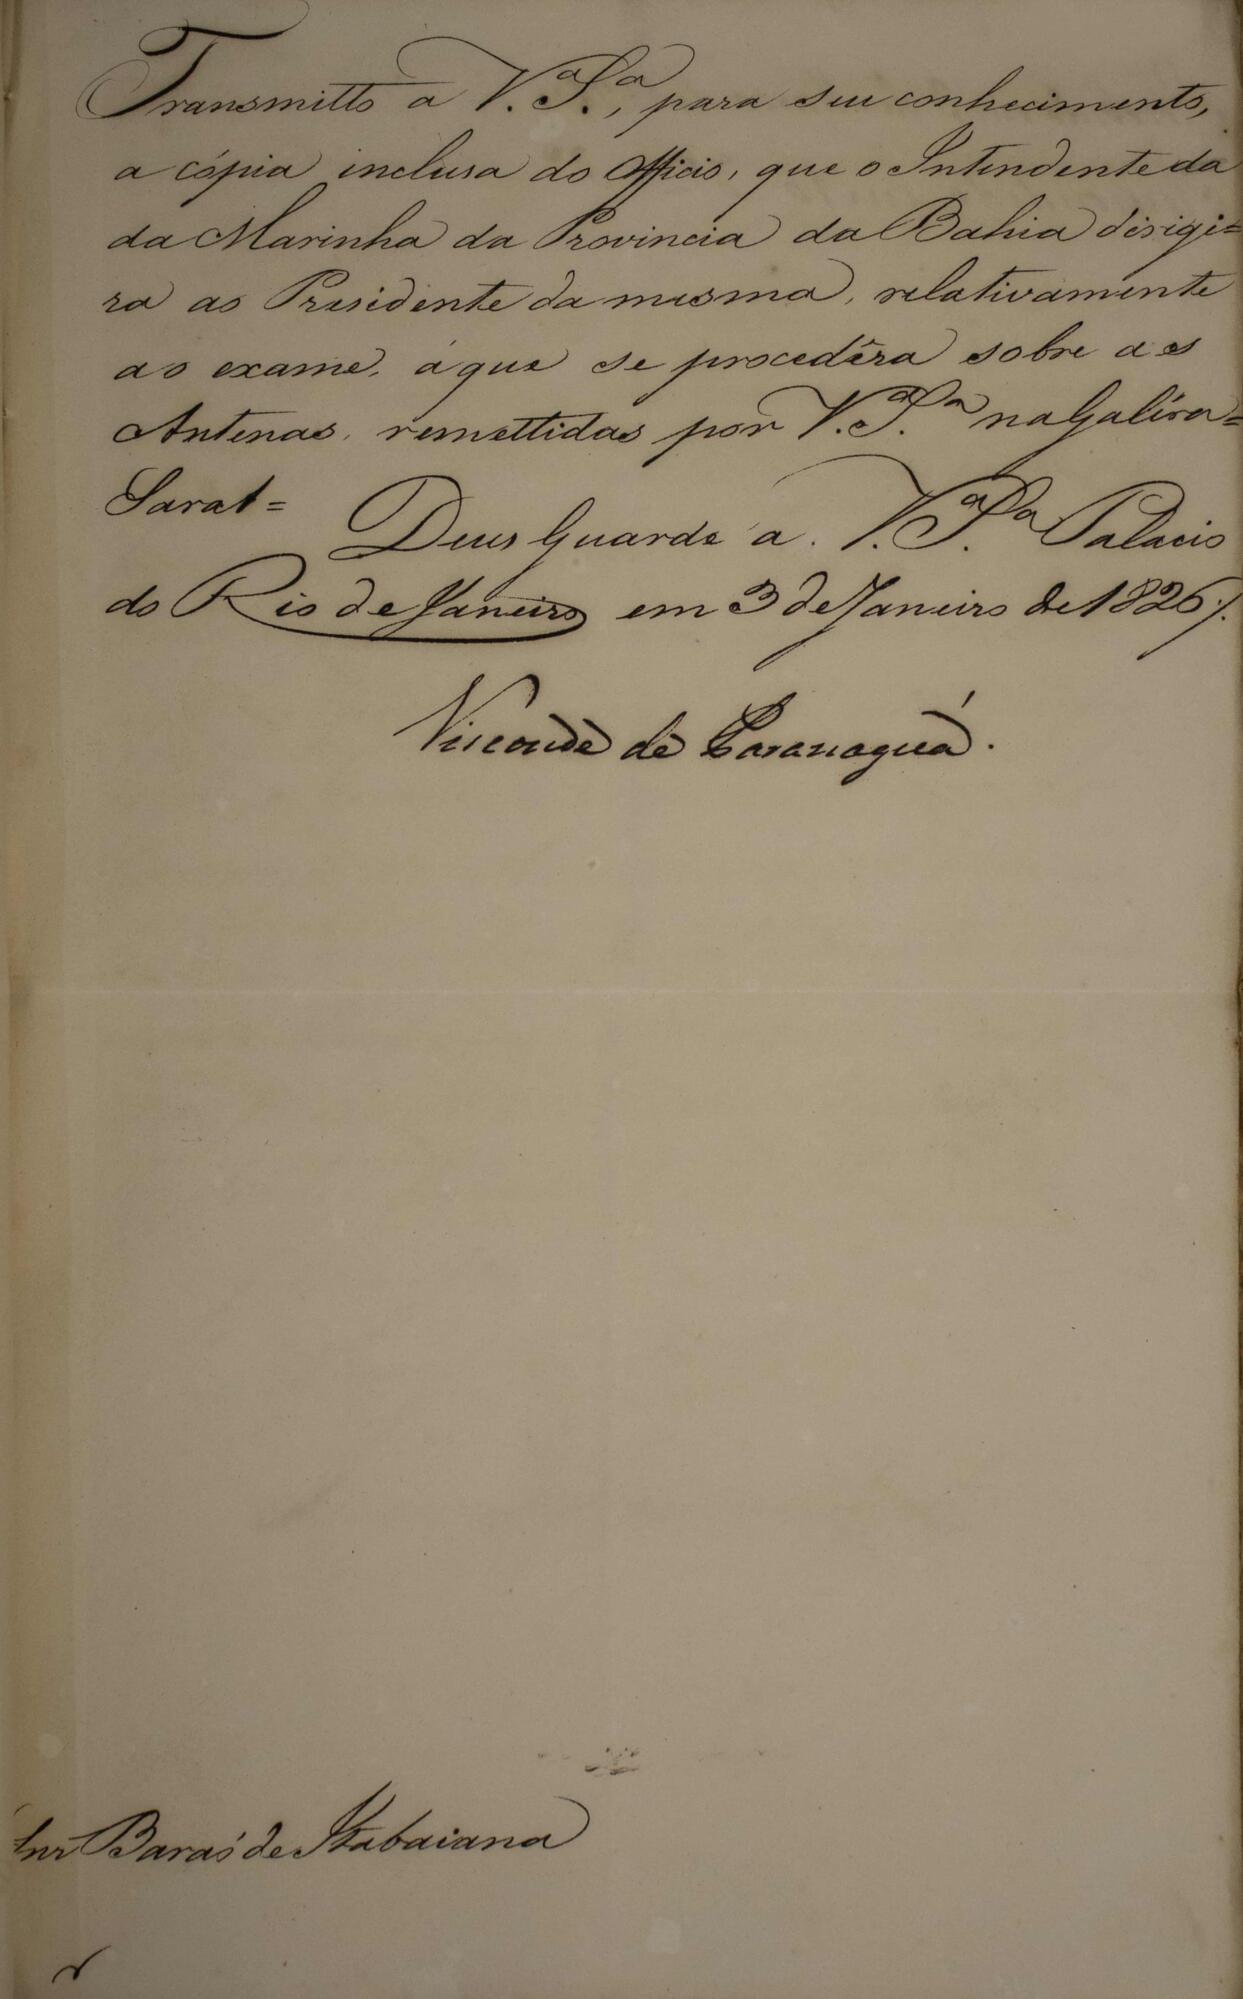 Transmitto a V.ª S.ª, para seu conhecimento,
a cópia inclusa do Officio, que o Intendente da
da Marinha da Provincia da Bahia dirigi=
ra ao Presidente da mesma, relativamente
ao exame, á que se procedêra sobre as
Antenas, remettidas por V.ª S.ª na Galéra=
Sarat=
Deus Guarde a V.ª S.ª Palacio
do Rio de Janeiro em 3 de Janeiro de 1826/.
Visconde de Paranaguá.
Snr Barão de Itabaiana